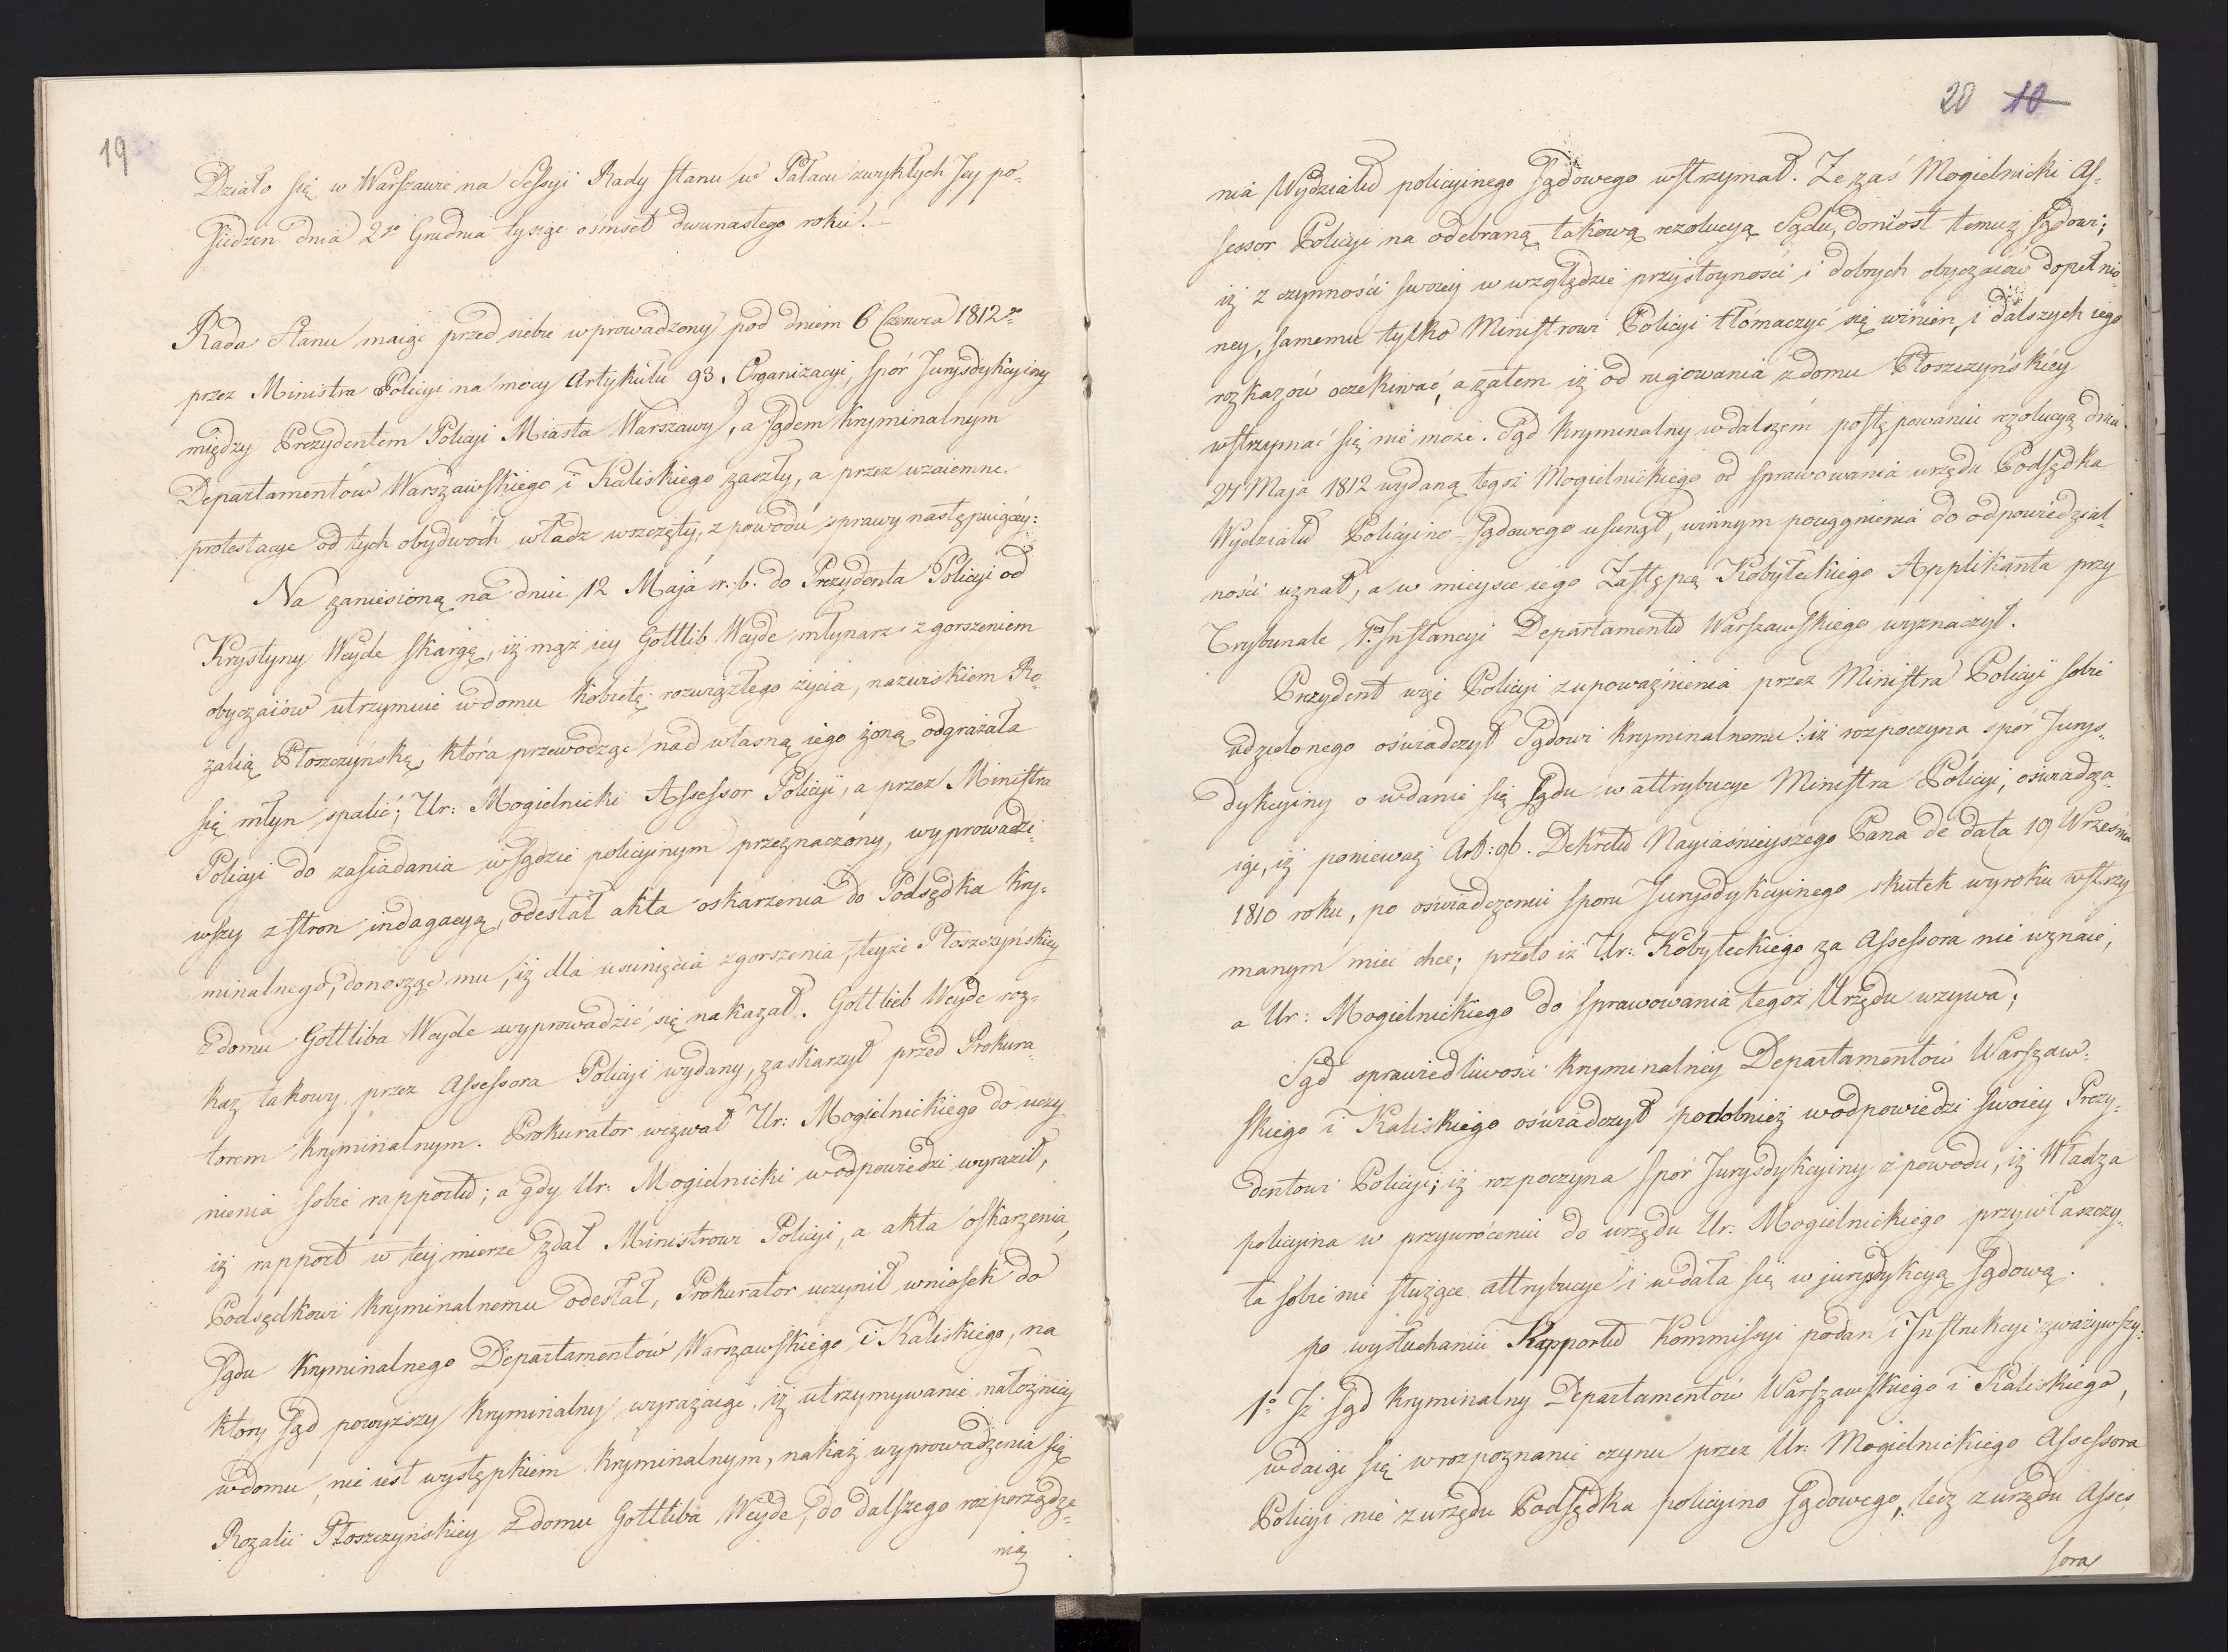 19
Działo się w Warszawie na Sessyi Rady Stanu w Pałacu zwykłych Jey po-
siedzeń dnia 2go Grudnia tysiąc ośmset dwunastego roku.
Rada Stanu maiąc przed siebie wprowadzony pod dniem 6 Czerwca 1812 r
przez Ministra Policyi na mocy Artykułu 93. Organizacyi, spór Jurysdykcyiny
między Prezydentem Policyi Miasta Warszawy, a Sądem Kryminalnym
Departamentów Warszawskiego i Kaliskiego zaszły, a przez wzaiemne
protestacye od tych obydwóch władz wszczęty, z powodu sprawy następuiącéy:
Na zaniesioną na dniu 12 Maja r. b. do Prezydenta Policyi od
Krystyny Weyde skargę, iż mąż iey Gottlib Weyde młynarz z gorszeniem
obyczaiów utrzymuie w domu kobietę rozwiązłego życia, nazwiskiem Ro-
zalią Płoszczyńską, która przewodząc nad własną iego żoną odgrażała
się młyn spalić; Ur: Mogielnicki Assessor Policyi, a przez Ministra
Policyi do zasiadania w Sądzie policyinym przeznaczony, wyprowadzi-
wszy z stron indagacyą, odesłał akta oskarżenia do Podsędka Kry-
minalnego, donosząc mu, iż dla usunięcia zgorszenia, teyże Płoszczyńskiey
z domu Gottliba Weyde wyprowadzić się nakazał. Gottlieb Weyde roz-
kaz takowy przez Assessora Policyi wydany, zaskarżył przed Prokura-
torem Kryminalnym. Prokurator wezwał Ur: Mogielnickiego do uczy-
nienia sobie rapportu; a gdy Ur: Mogielnicki w odpowiedzi wyraził,
iż rapport w tey mierze zdał Ministrowi Policyi, a akta oskarżenia,
Podsędkowi Kryminalnemu odesłał, Prokurator uczynił wniosek do
Sądu Kryminalnego Departamentów Warszawskiego i Kaliskiego, na
który Sąd powyższy Kryminalny wyrażaiąc, iż utrzymywanie nałożnicy
w domu, nie iest występkiem Kryminalnym, nakaz wyprowadzenia się
Rozalii Płoszczyńskiey z domu Gottliba Weyde, do dalszego rozporządze-
nia
20 10
nia Wydziału policyinego Sądowego wstrzymał. Że zaś Mogielnicki As-
sessor Policyi na odebraną takową rezolucyą Sądu, doniósł temuż Sądowi;
iż z czynności swoiey w względzie przystoyności i dobrych obyczaiów dopełnio-
ney, samemu tylko Ministrowi Policyi tłómaczyć się winien, i dalszych iego
rozkazów oczekiwać, a zatem iż od rugowania z domu Płoszczyńskiéy
wstrzymać się nie może. Sąd Kryminalny w dalszém postępowaniu rezolucyą dnia
27 Maja 1812 wydaną tegoż Mogielnickiego od sprawowania urzędu Podsędka
Wydziału Policyino-Sądowego usunął, winnym pociągnienia do odpowiedzial-
ności uznał, a w mieysce iego Zastępcą Kobyłeckiego Applikanta przy
Trybunale 1éy Instancyi Departamentu Warszawskiego wyznaczył.
Prezydent więc Policyi z upoważnienia przez Ministra Policyi sobie
udzielonego oświadczył Sądowi Kryminalnemu: iż rozpoczyna spór Jurys-
dykcyiny o wdanie się Sądu w attrybucye Ministra Policyi, oświadcza-
iąc, iż ponieważ Art: 96. Dekretu Nayiaśnieyszego Pana de dato 19 Września
1810 roku, po oświadczeniu sporu Jurysdykcyinego skutek wyroku wstrzy
manym mieć chce; przeto iż Ur: Kobyłeckiego za Assessora nie uznaie,
a Ur: Mogielnickiego do sprawowania tegoż Urzędu wzywa;
Sąd sprawiedliwości kryminalnéy Departamentów Warszaw-
skiego i Kaliskiego oświadczył podobnież w odpowiedzi swoiey Prezy-
dentowi Policyi; iż rozpoczyna spór Jurysdykcyiny z powodu, iż Władza
policyina w przywróceniu do urzędu Ur. Mogielnickiego przywłaszczy-
ła sobie nie służące attrybucye i wdała się w jurysdykcyą Sądową.
po wysłuchaniu Rapportu Kommissyi podań i Instrukcyi zważywszy:
1o Iż Sąd Kryminalny Departamentów Warszawskiego i Kaliskiego,
wdaiąc się w rozpoznanie czynu przez Ur: Mogielnickiego Assessora
Policyi nie z urzędu Podsędka policyino Sądowego, lecz z urzędu Asses
sora